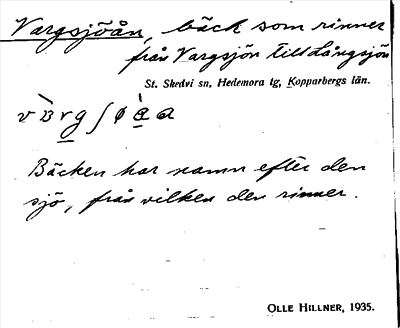 Vargsjöån, bäck som rinner
från Vargsjön till Långsjön
St. Skedvi sn, Hedemora tg, Kopparbergs län.
Bäcken har namn efter den
sjö, från vilken den rinner.
OLLE HILLNER, 1935.